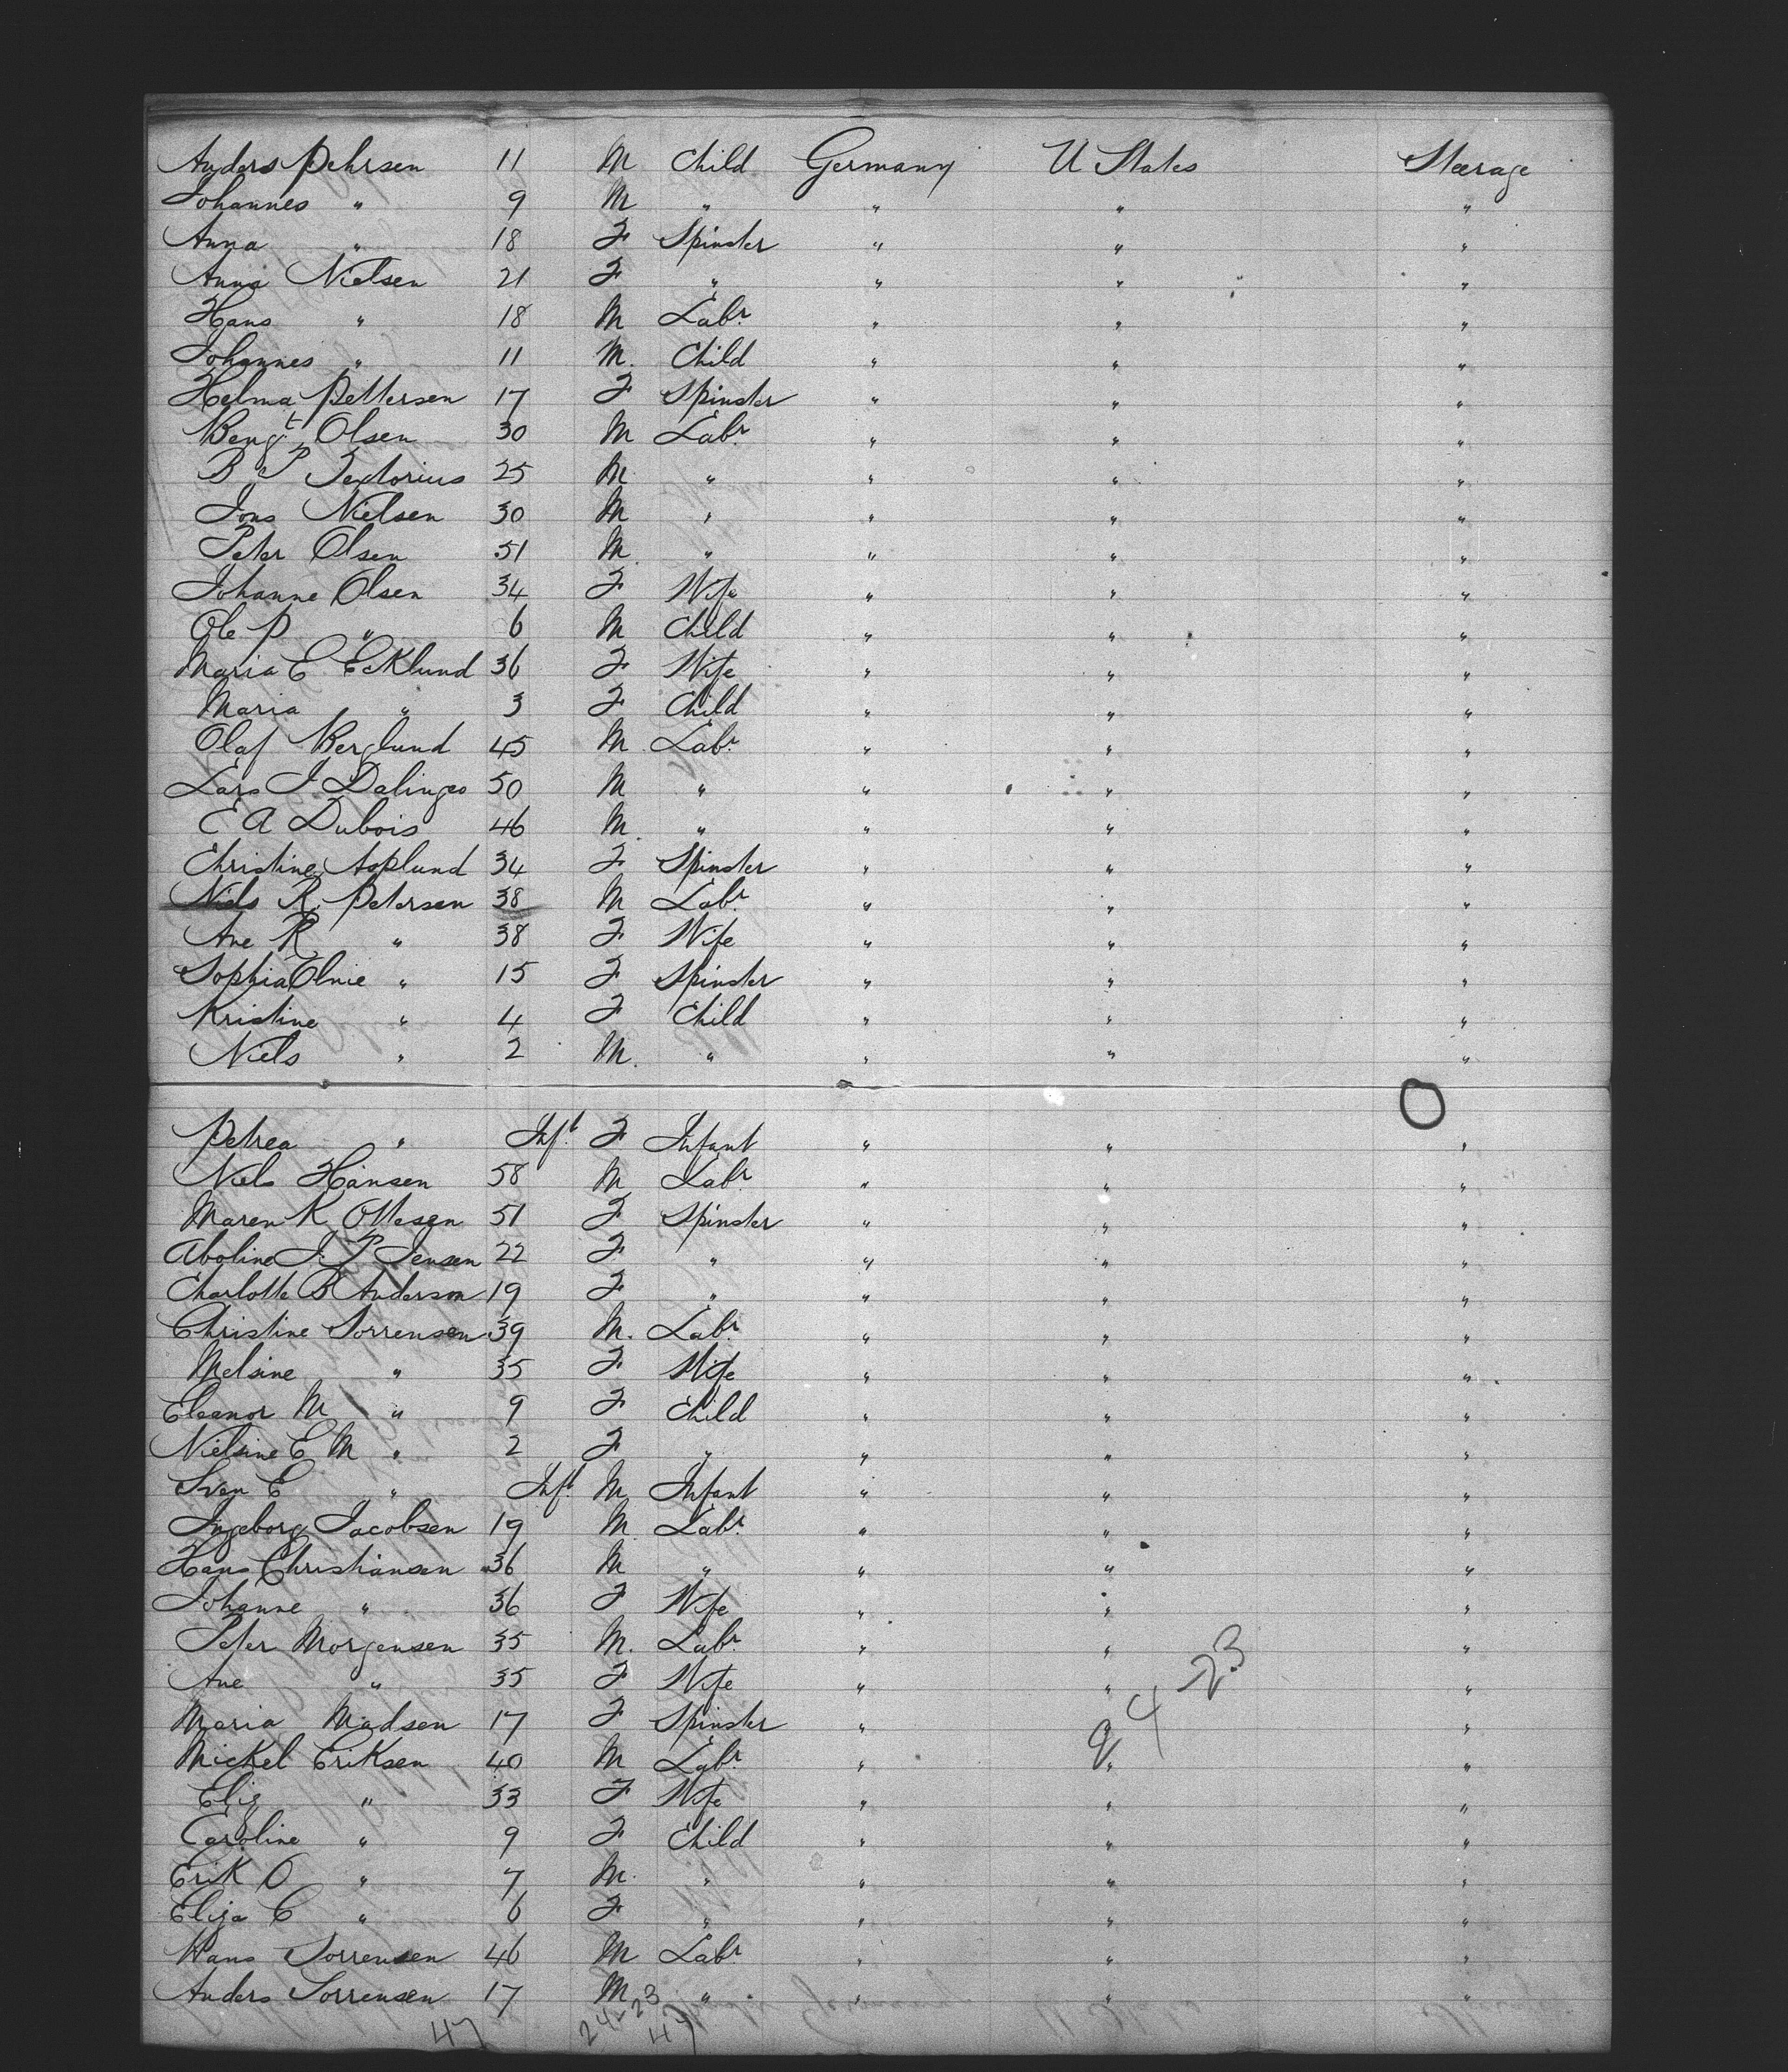 Anders Pehrsen 11 M Child Germany U States Steerage
Johannes " 9 M " " " "
Anna " 18 F Spinster " " "
Anna Nielsen 21 F " " " "
Hans " 18 M Labr " " "
Johannes " 11 M. Child " " "
Helma Pettersen 17 F Spinster " " "
Bengt Olsen 30 M Labr " " "
B P Textorius 25 M " " " "
Jons Nielsen 30 M " " " "
Peter Olsen 51 M " " " "
Johanne Olsen 34 F Wife " " "
Ole P " 6 M Child " " "
Maria E Ecklund 36 F Wife " " "
Maria " 3 F Child " " "
Olaf Berglund 45 M Labr " " "
Lars J 50 M " " " "
E A Dubois 46 M " " " "
Christine Asplund 34 F Spinster " " "
Niels R. Petersen 38 M Labr " " "
Ane R " 38 F Wife " " "
Sophia " 15 F Spinster " " "
Kristine " 4 F Child " " "
Niels " 2 M. " " " "
Petrea " Inft F Infant " " "
Niels Hansen 58 M Labr " " "
Maren K Ottesen 51 F Spinster " " "
Aboline J. P Jensen 22 F " " " "
Charlotte B Anderson 19 F " " " "
Christine Sorrensen 39 M. Labr " " "
Melsine " 35 F Wife " " "
Eleanor M " 9 F Child " " "
Nielsine E M " 2 F " " " "
Sven E " Inft M Infant " " "
Ingeborg Jacobsen 19 M Labr " " "
Hans Christiansen 36 M " " " "
Johanne " 36 F Wife " " "
Peter Morgensen 35 M. Labr " " "
Ane " 35 F Wife " " "
Maria Madsen 17 F Spinster " " "
Mickel Eriksen 40 M Labr " " "
Eliz " 33 F Wife " " "
Caroline " 9 F Child " " "
Erik O " 7 M. " " " "
Eliza C " 6 F " " " "
Hans Sorrensen 46 M Labr " " "
Anders Sorrensen 17 M " " " "
47 24-23 47